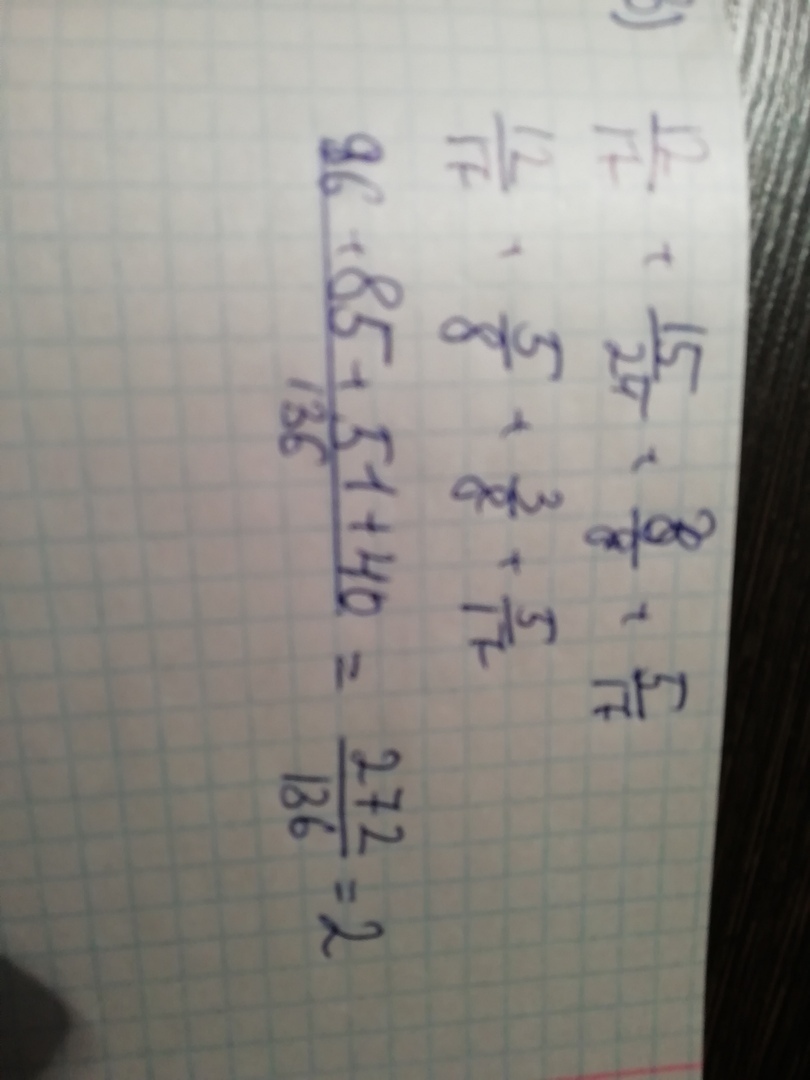 в)
12/17 + 15/24 + 3/8 + 5/17
12/17 + 5/8 + 3/8 + 5/17
96 + 85 + 51 + 40 / 136 = 272/136 = 2